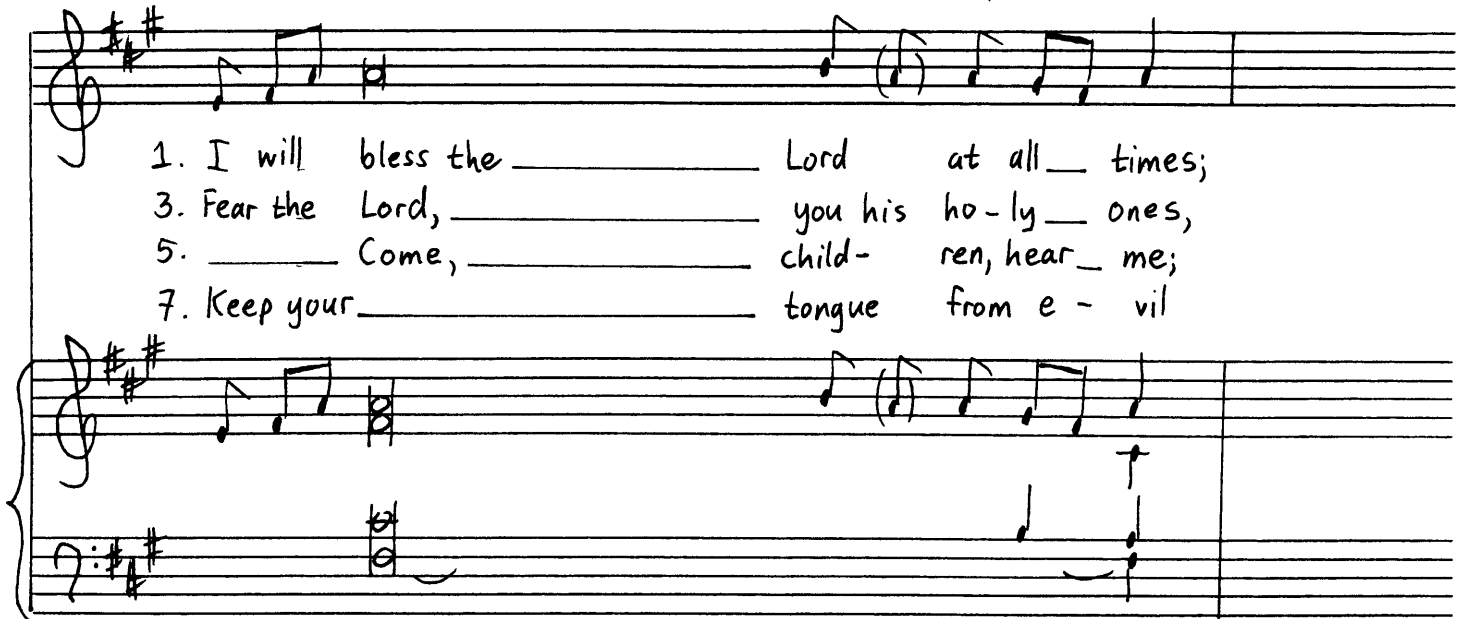 1. I will bless the ________ Lord at all __ times;
3. Fear the Lord, ________ you his ho - ly __ ones,
5. ____ Come, ________ child - ren, hear _ me;
7. Keep your ________ tongue from e - vil